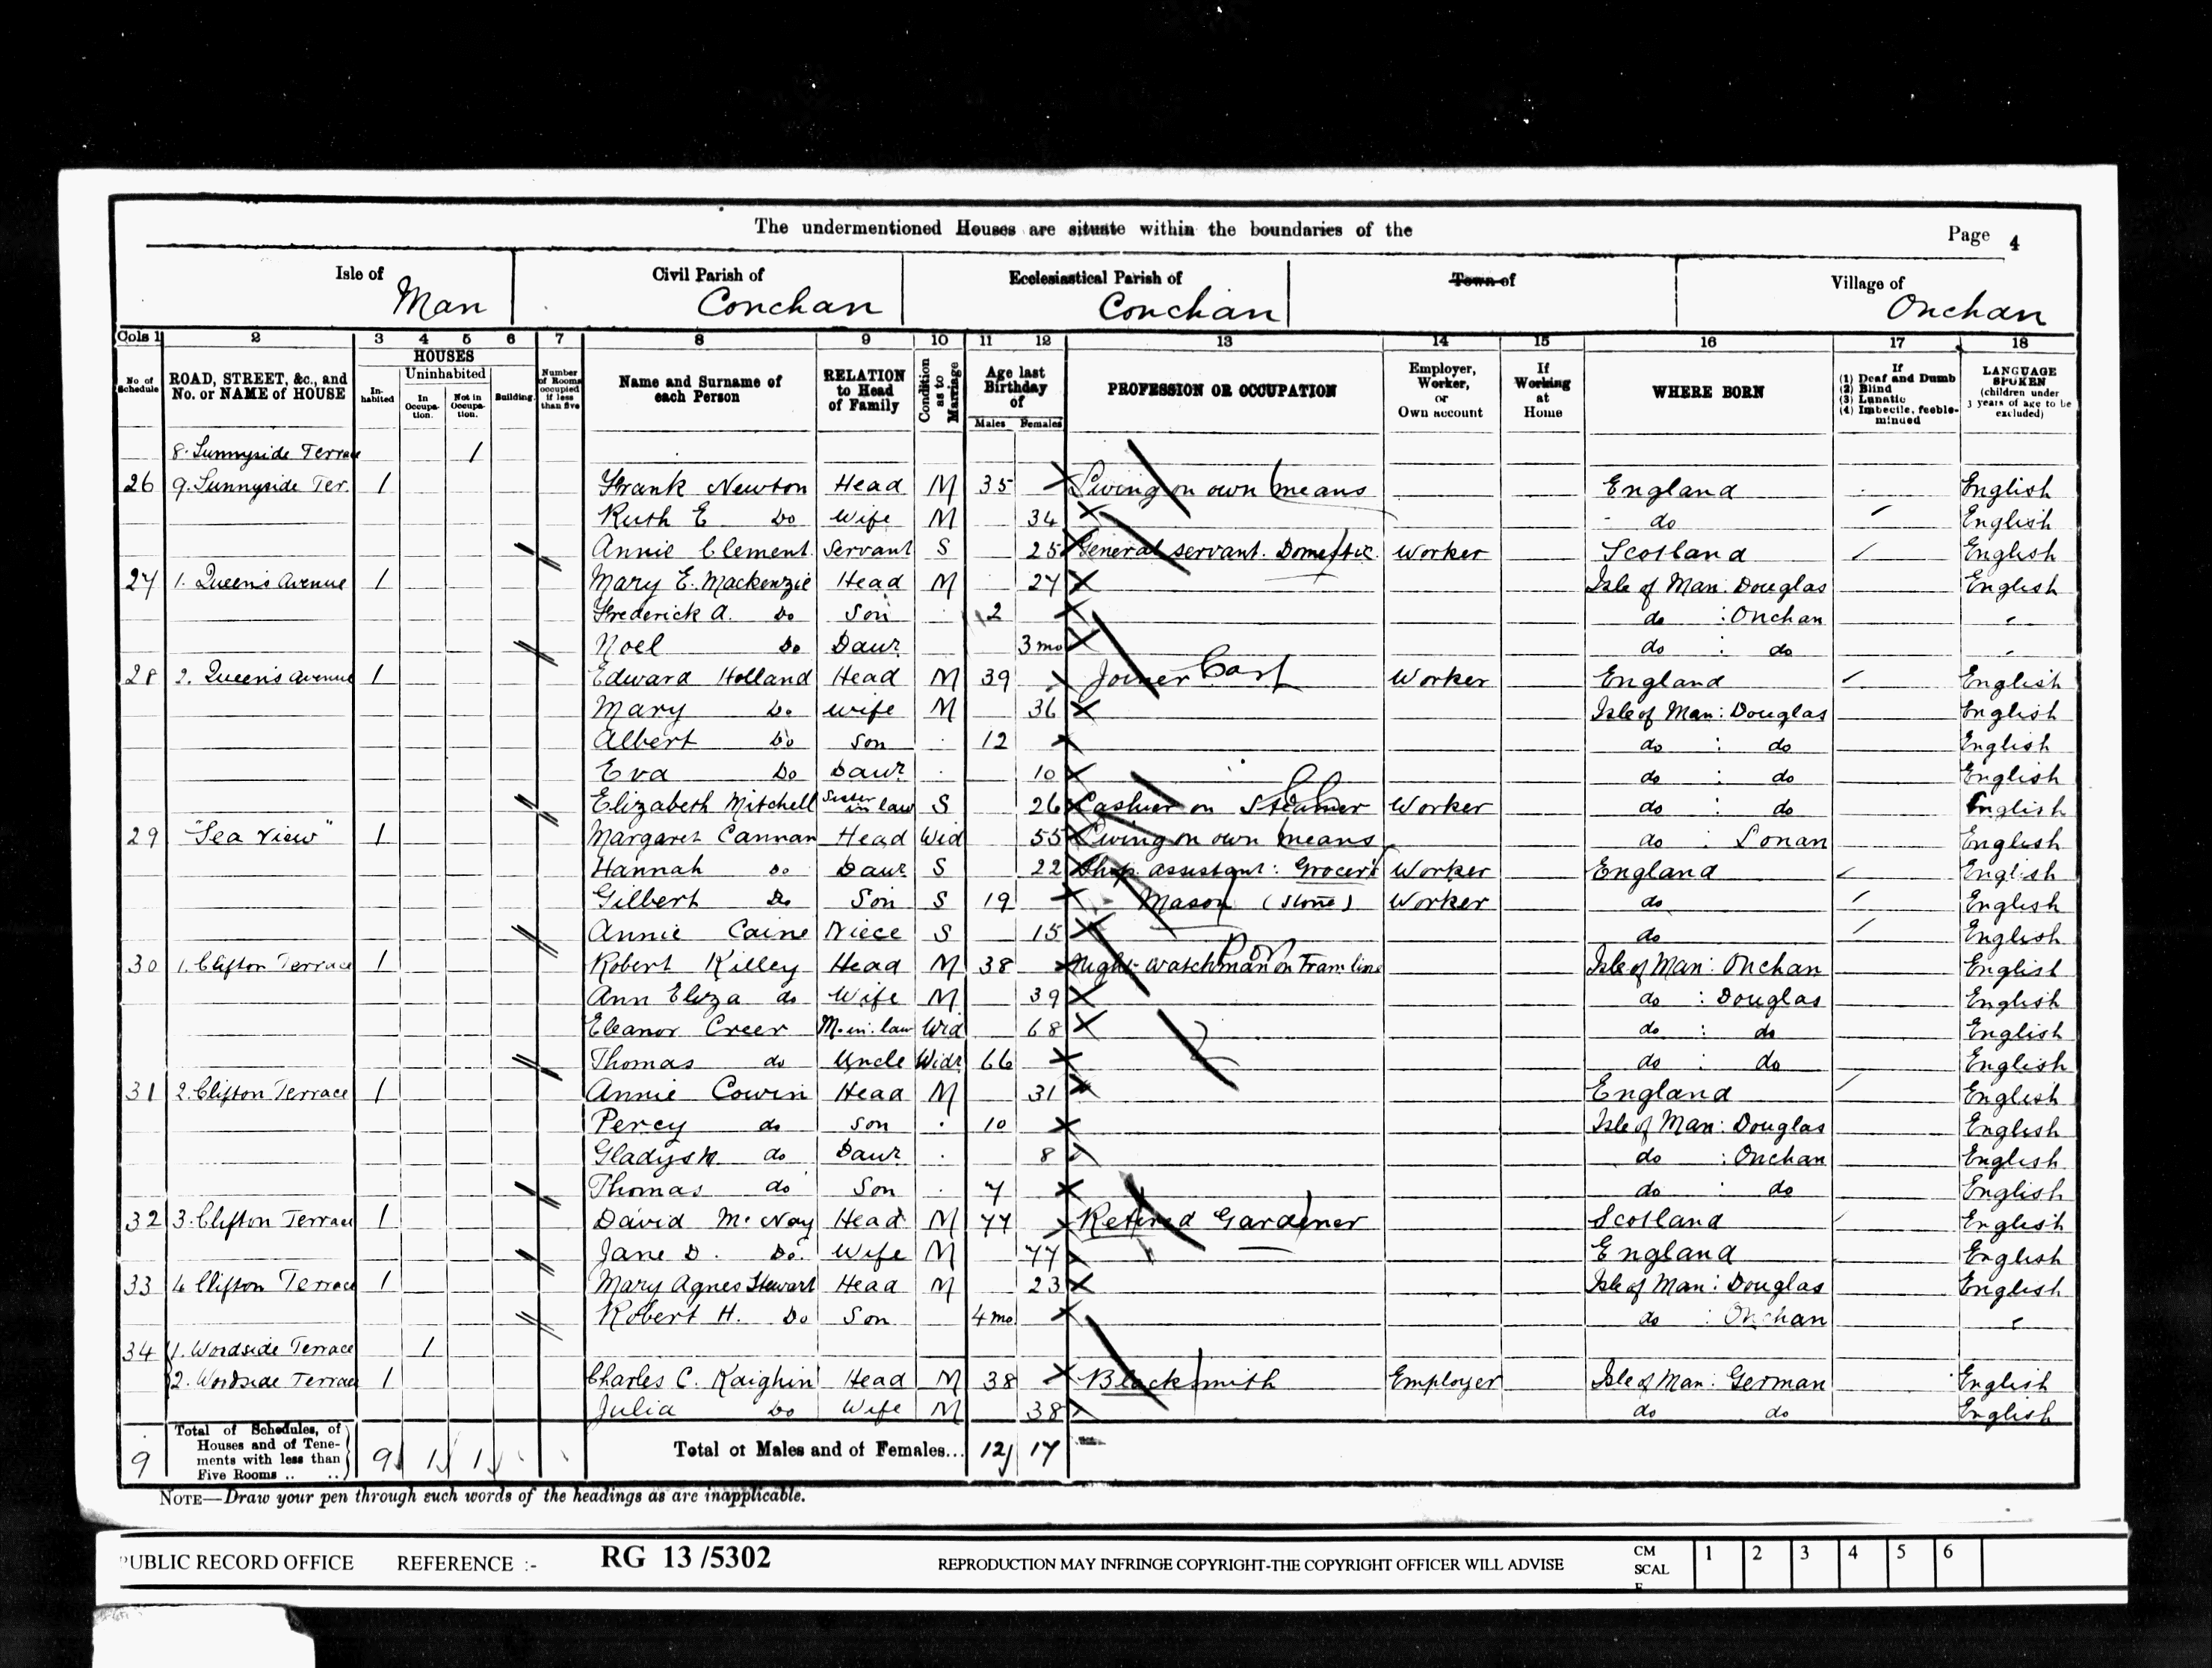 The undermentioned Houses are situate within the boundaries of the
Page 4
Isle of Man
Civil Parish of Conchan
Ecclesiastical Parish of Conchan
Town of
Village of Onchan
Cols 1 2 3 4 5 6 7 8 9 10 11 12 13 14 15 16 17 18
No. of Schedule
ROAD, STREET, &c., and No. or NAME of HOUSE
HOUSES
Inhabited
Uninhabited
In Occupation.
Not in Occupation.
Building.
Number of Rooms occupied if less than five
Name and Surname of each Person
RELATION to Head of Family
Condition as to Marriage
Age last Birthday of
Males Females
PROFESSION OR OCCUPATION
Employer, Worker, or Own account
If Working at Home
WHERE BORN
If (1) Deaf and Dumb (2) Blind (3) Lunatic (4) Imbecile, feeble-minded
LANGUAGE SPOKEN (children under 3 years of age to be excluded)
8. Sunnyside Terrace 1
26 9. Sunnyside Ter. 1 Frank Newton Head M 35 Living on own means England English
Ruth E Do Wife M 34 do English
Annie Clement Servant S 25 General servant. Domestic Worker Scotland English
27 1. Queen's Avenue 1 Mary E. Mackenzie Head M 27 Isle of Man: Douglas English
Frederick A. Do Son 2 do : Onchan
Noel Do Daur 3 mo do : do
28 2. Queen's Avenue 1 Edward Holland Head M 39 Joiner Worker England English
Mary Do wife M 36 Isle of Man: Douglas English
Albert Do Son 12 do : do English
Eva Do Daur 10 do : do English
Elizabeth Mitchell Sister in law S 26 Cashier on Steamer Worker do : do English
29 "Sea View" 1 Margaret Cannan Head Wid 55 Living on own means do : Lonan English
Hannah Do Daur S 22 Shop assistant: Grocer's Worker England English
Gilbert Do Son S 19 Mason (Stone) Worker do English
Annie Caine Niece S 15 do English
30 1. Clifton Terrace 1 Robert Killey Head M 38 Night Watchman on Tram line Isle of Man: Onchan English
Ann Eliza do Wife M 39 do : Douglas English
Eleanor Creer M. in. law Wid 68 do : do English
Thomas do Uncle Widr 66 do : do English
31 2. Clifton Terrace 1 Annie Cowin Head M 31 England English
Percy do Son 10 Isle of Man: Douglas English
Gladys M. do Daur 8 do : Onchan English
Thomas do Son 7 do : do English
32 3. Clifton Terrace 1 David McNay Head M 77 Retired Gardener Scotland English
Jane D. Do Wife M 77 England English
33 4 Clifton Terrace 1 Mary Agnes Stewart Head M 23 Isle of Man: Douglas English
Robert H. Do Son 4 mo do : Onchan
34 1. Woodside Terrace 1
2. Woodside Terrace 1 Charles C. Kaighin Head M 38 Blacksmith Employer Isle of Man: German English
Julia Do Wife M 38 do do English
9 Total of Schedules, of Houses and of Tenements with less than Five Rooms .. .. 9 1 1 Total of Males and of Females... 12 17
NOTE—Draw your pen through such words of the headings as are inapplicable.
PUBLIC RECORD OFFICE REFERENCE :- RG 13/5302 REPRODUCTION MAY INFRINGE COPYRIGHT-THE COPYRIGHT OFFICER WILL ADVISE CM SCALE 1 2 3 4 5 6